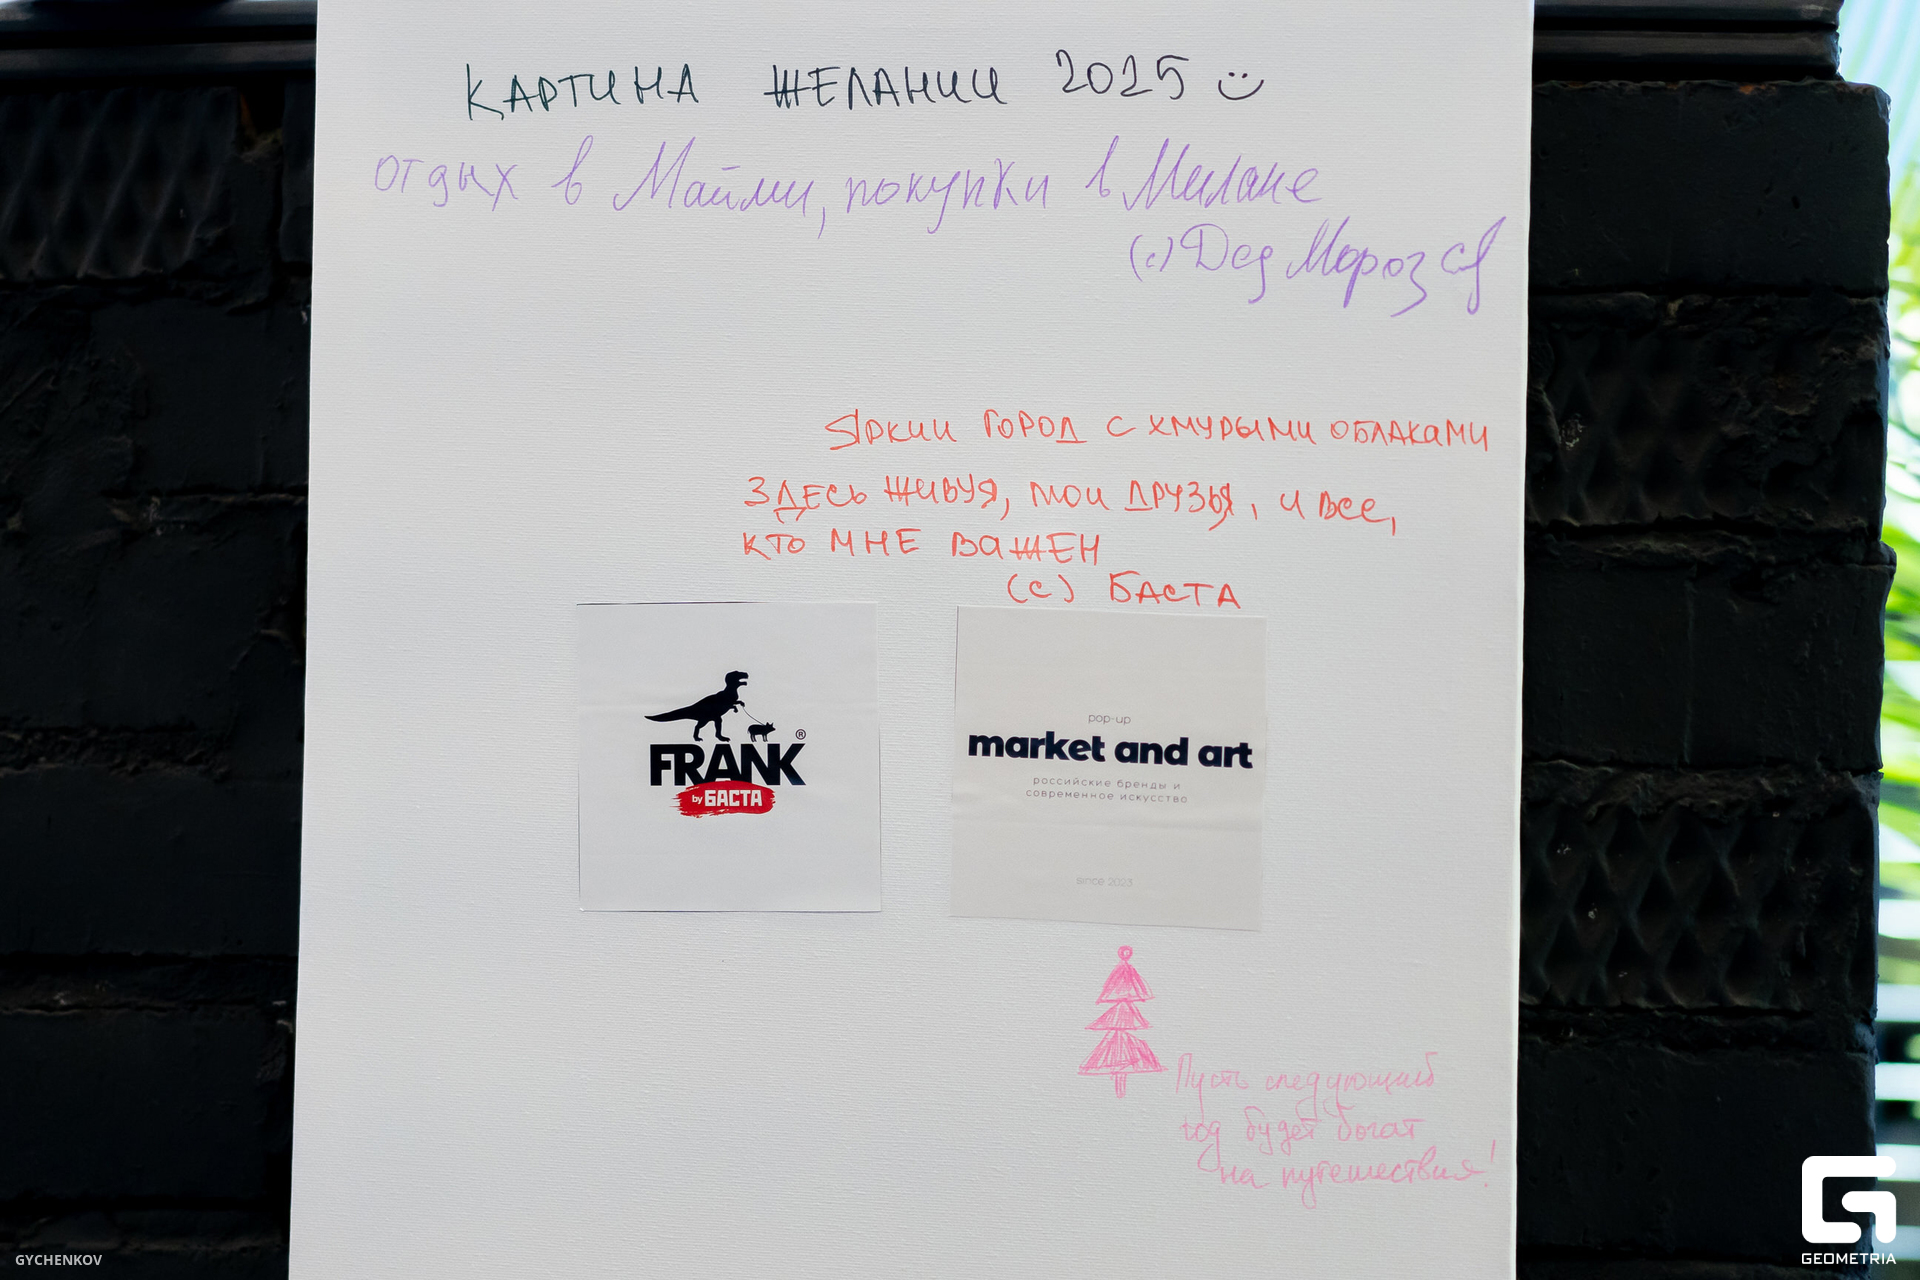 КАРТИНА ЖЕЛАНИИ 2025
отдых в Майми, покупки в Милане
(с) Дед Мороз
Яркии город с хмурыми облаками
Здесь живуя, мои друзья, и все,
кто мне важен
(с) БАСТА
FRANK®
by БАСТА
pop-up
market and art
российские бренды и
современное искусство
since 2023
Пусть следующий
год будет богат
на путешествия!
GYCHENKOV
GEOMETRIA